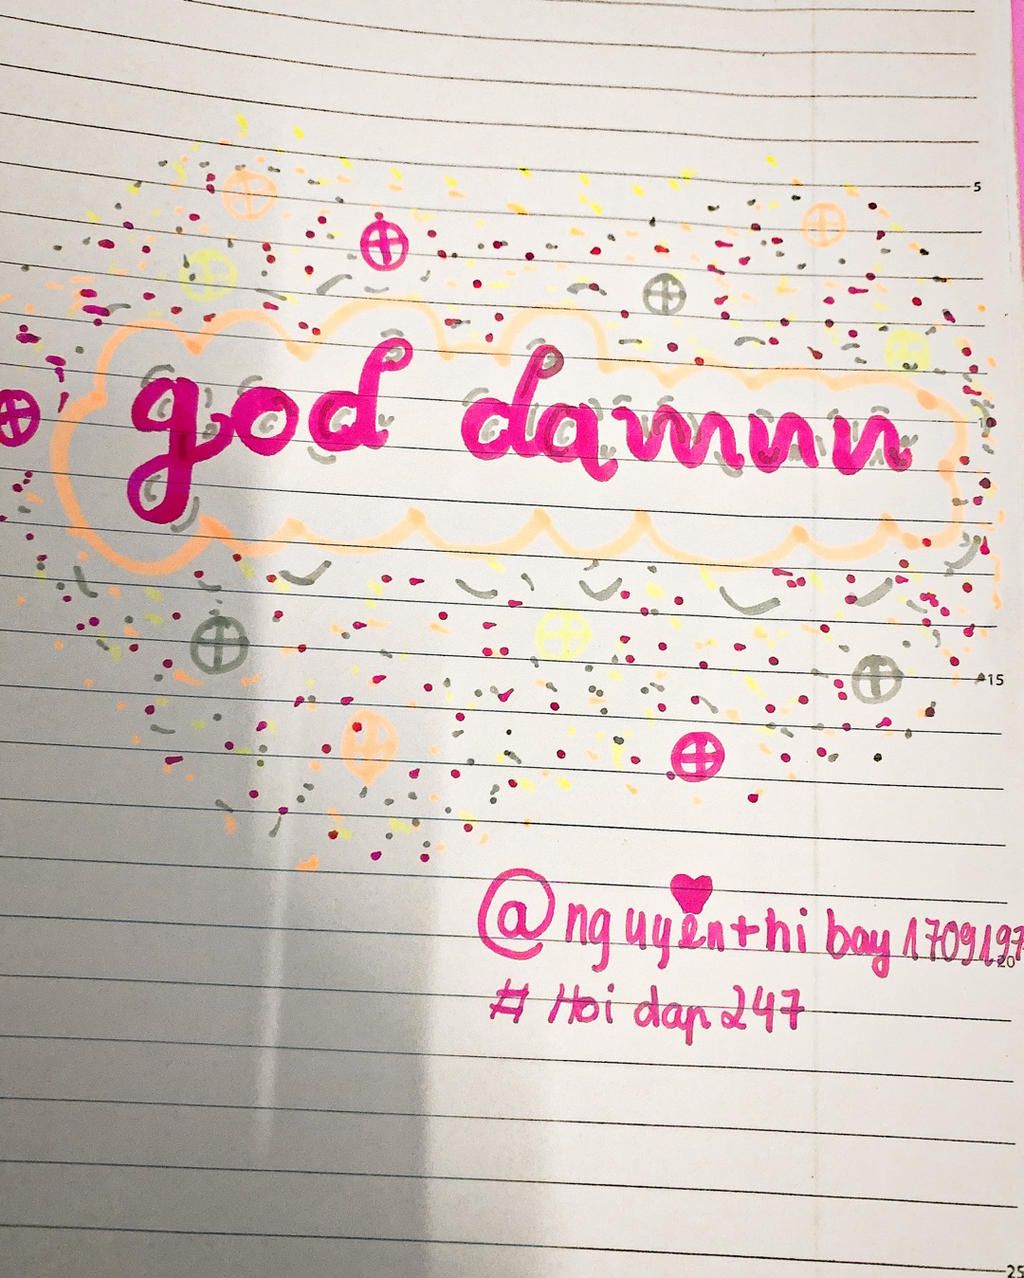 5
god damnn
15
@nguyenthi bay 1709197
20
# Hoi dap 247
25